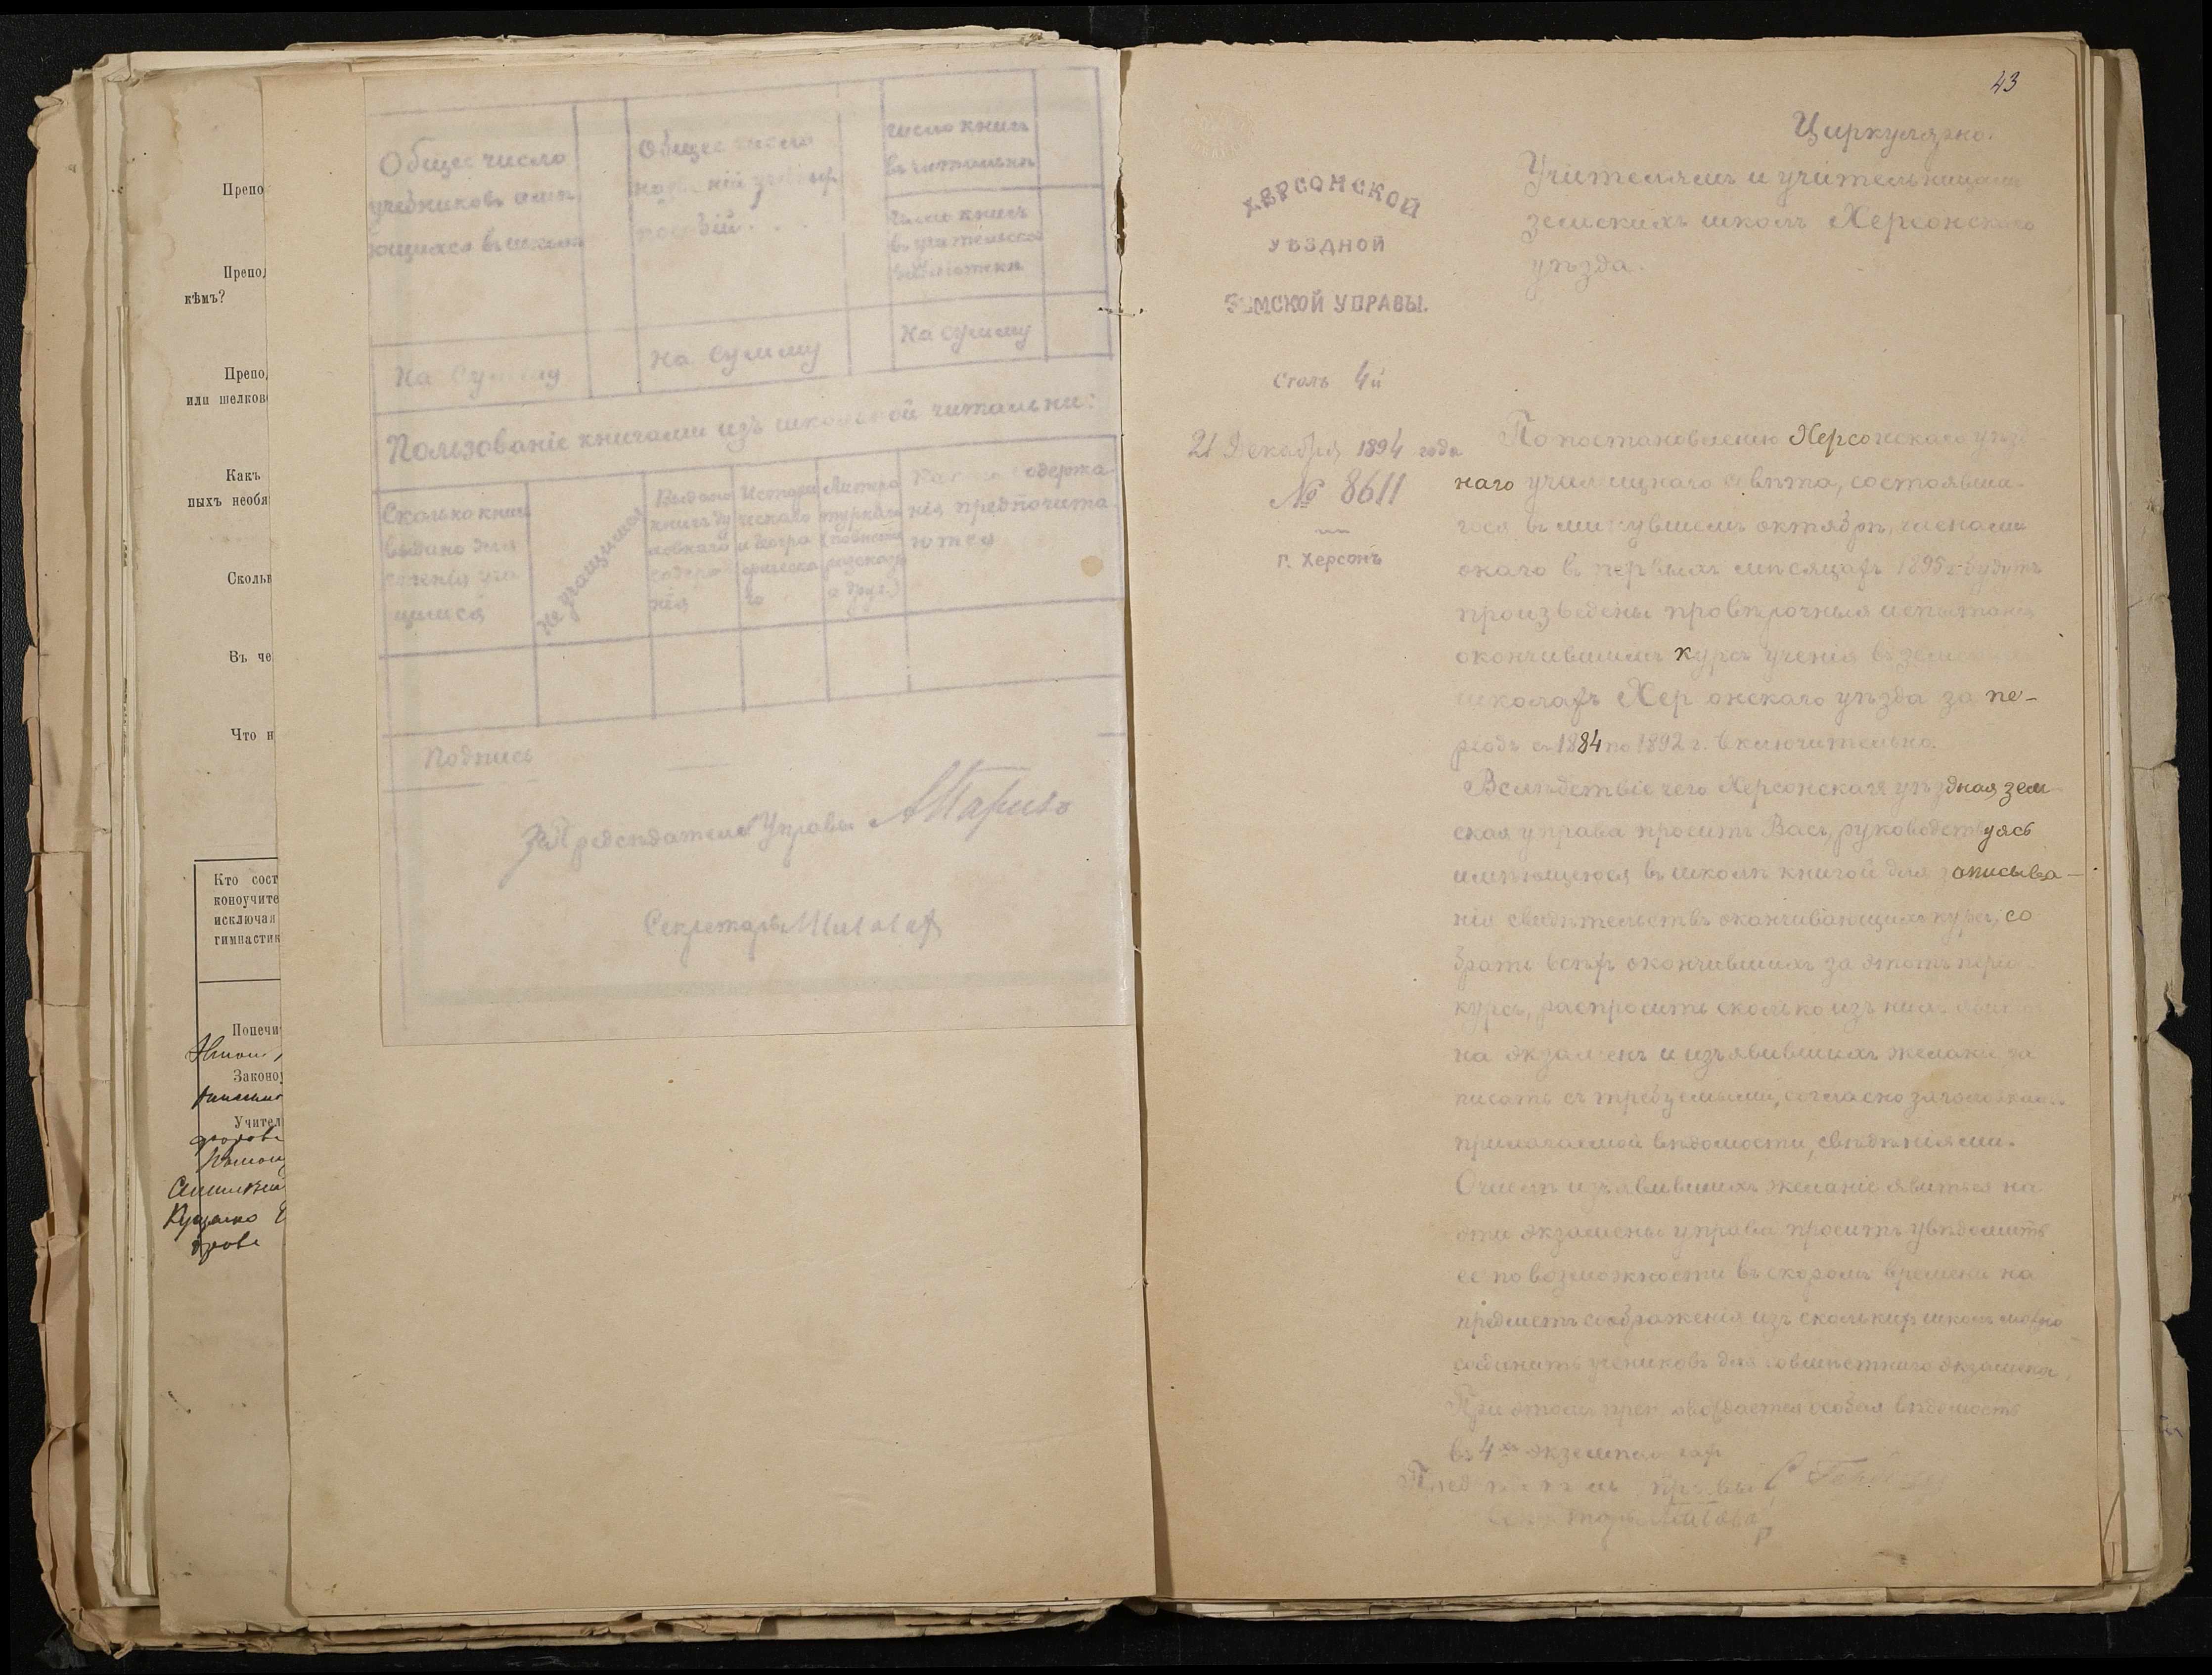 Препо
Препо
кѣмъ?
Препо
или шелков
Какъ
ныхъ необя
Сколь
Въ че
Что н
Кто сост
коноучите
исключая
гимнастик
Попечи
Законо
Учител
Общее число
учебниковъ имѣ-
ющихся въ школѣ
На сумму
Общее число
названій учебных
пособій . . .
На сумму
число книгъ
въ читальнѣ
число книгъ
въ учительской
библіотекѣ
На сумму
Пользованіе книгами изъ школьной читальни:
Сколько книг
выдано для
чтенія уча
щимися
не учащимися
Выдано
книгъ ду
ховнаго
содержа
нія
Истори
ческаго
и геогра
ческа
го
Литера
турнаго
(повести
рассказы
и друг.)
содержа
нія предпочита
ются
Подпись
За Предсѣдателя Управы
Секретарь
43
Циркулярно.
Учителямъ и учительницамъ
земскихъ школъ Херсонскаго
уѣзда.
ХЕРСОНСКОЙ
УѢЗДНОЙ
ЗЕМСКОЙ УПРАВЫ.
Столъ 4й
21 Декабря 1894 года
№ 8611
Г. Херсонъ
По постановленію Херсонскаго уѣзд
наго училищнаго совѣта, состоявша-
гося въ минувшемъ октябрѣ, членами
онаго въ первыхъ мѣсяцахъ 1895 г. будутъ
произведены провѣрочныя испытанія
окончившимъ курсъ ученія въ земс
школахъ Херсонскаго уѣзда за пе-
ріодъ съ 1884 по 1892 г. включительно.
Вслѣдствіе чего Херсонская уѣздная зем
ская управа проситъ Васъ, руководствуясь
имѣющеюся въ школѣ книгой для записыва-
нія свидѣтельствъ оканчивающихъ курсъ, со
брать всѣхъ окончившихъ за этотъ періо
курсъ, распросить сколько изъ нихъ
на экзаменъ и изъявившихъ желаніе за
писать съ требуемыми, согласно заголовкамъ
прилагаемой вѣдомости, свѣдѣніями.
О числѣ изъявившихъ желаніе явиться на
эти экзамены управа проситъ увѣдомить
ее по возможности въ скоромъ времени на
предметъ соображенія изъ сколькихъ школъ можно
соединить учениковъ для совмѣстнаго экзамена.
При этомъ препровождается особая вѣдомость
въ 4хъ экземплярахъ
Предсѣдатель Управы
Секретарь